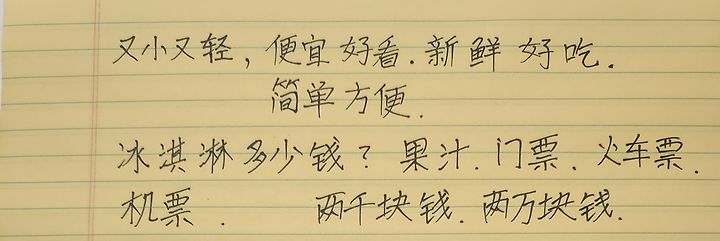 又小又轻，便宜好看.新鲜好吃.
简单方便.
冰淇淋多少钱？果汁.门票.火车票.
机票. 两千块钱.两万块钱.